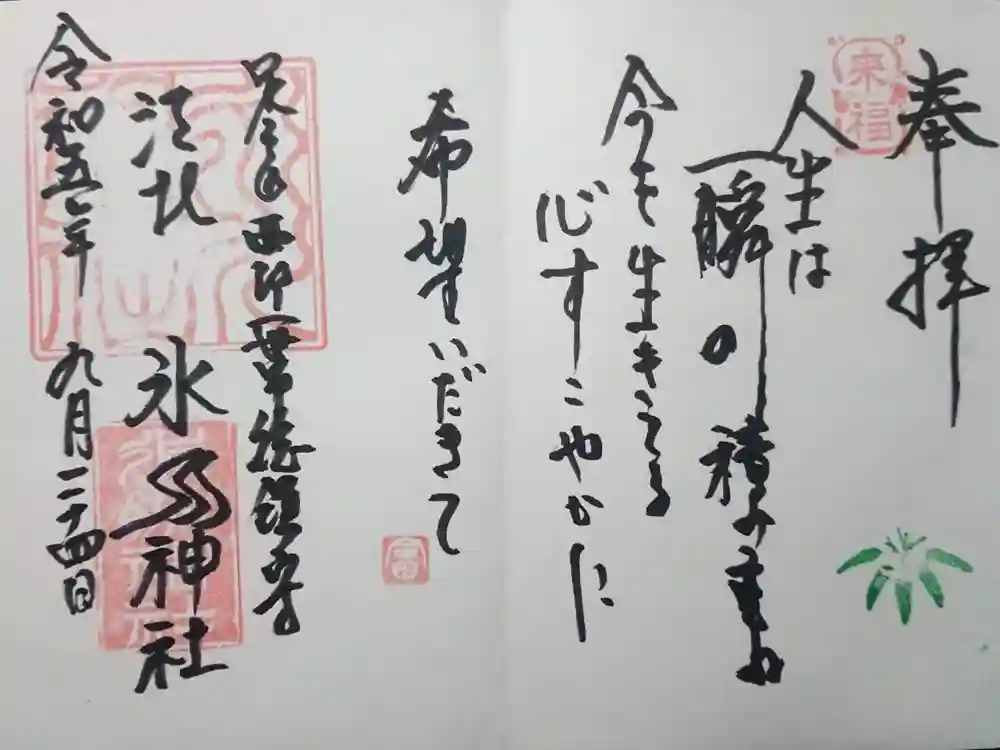 奉拝
来福
人生は
一瞬の積み重ね
今を生きてる
心すこやかに
希望いだきて
江北 氷川神社
令和五年 九月二十四日